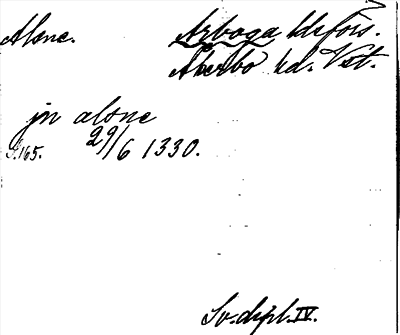 Alsne. Arboga ldsförs.
Åkerbo hd. Vst.
jn alsne
S.165. 29/6 1330.
Sv. dipl. IV.